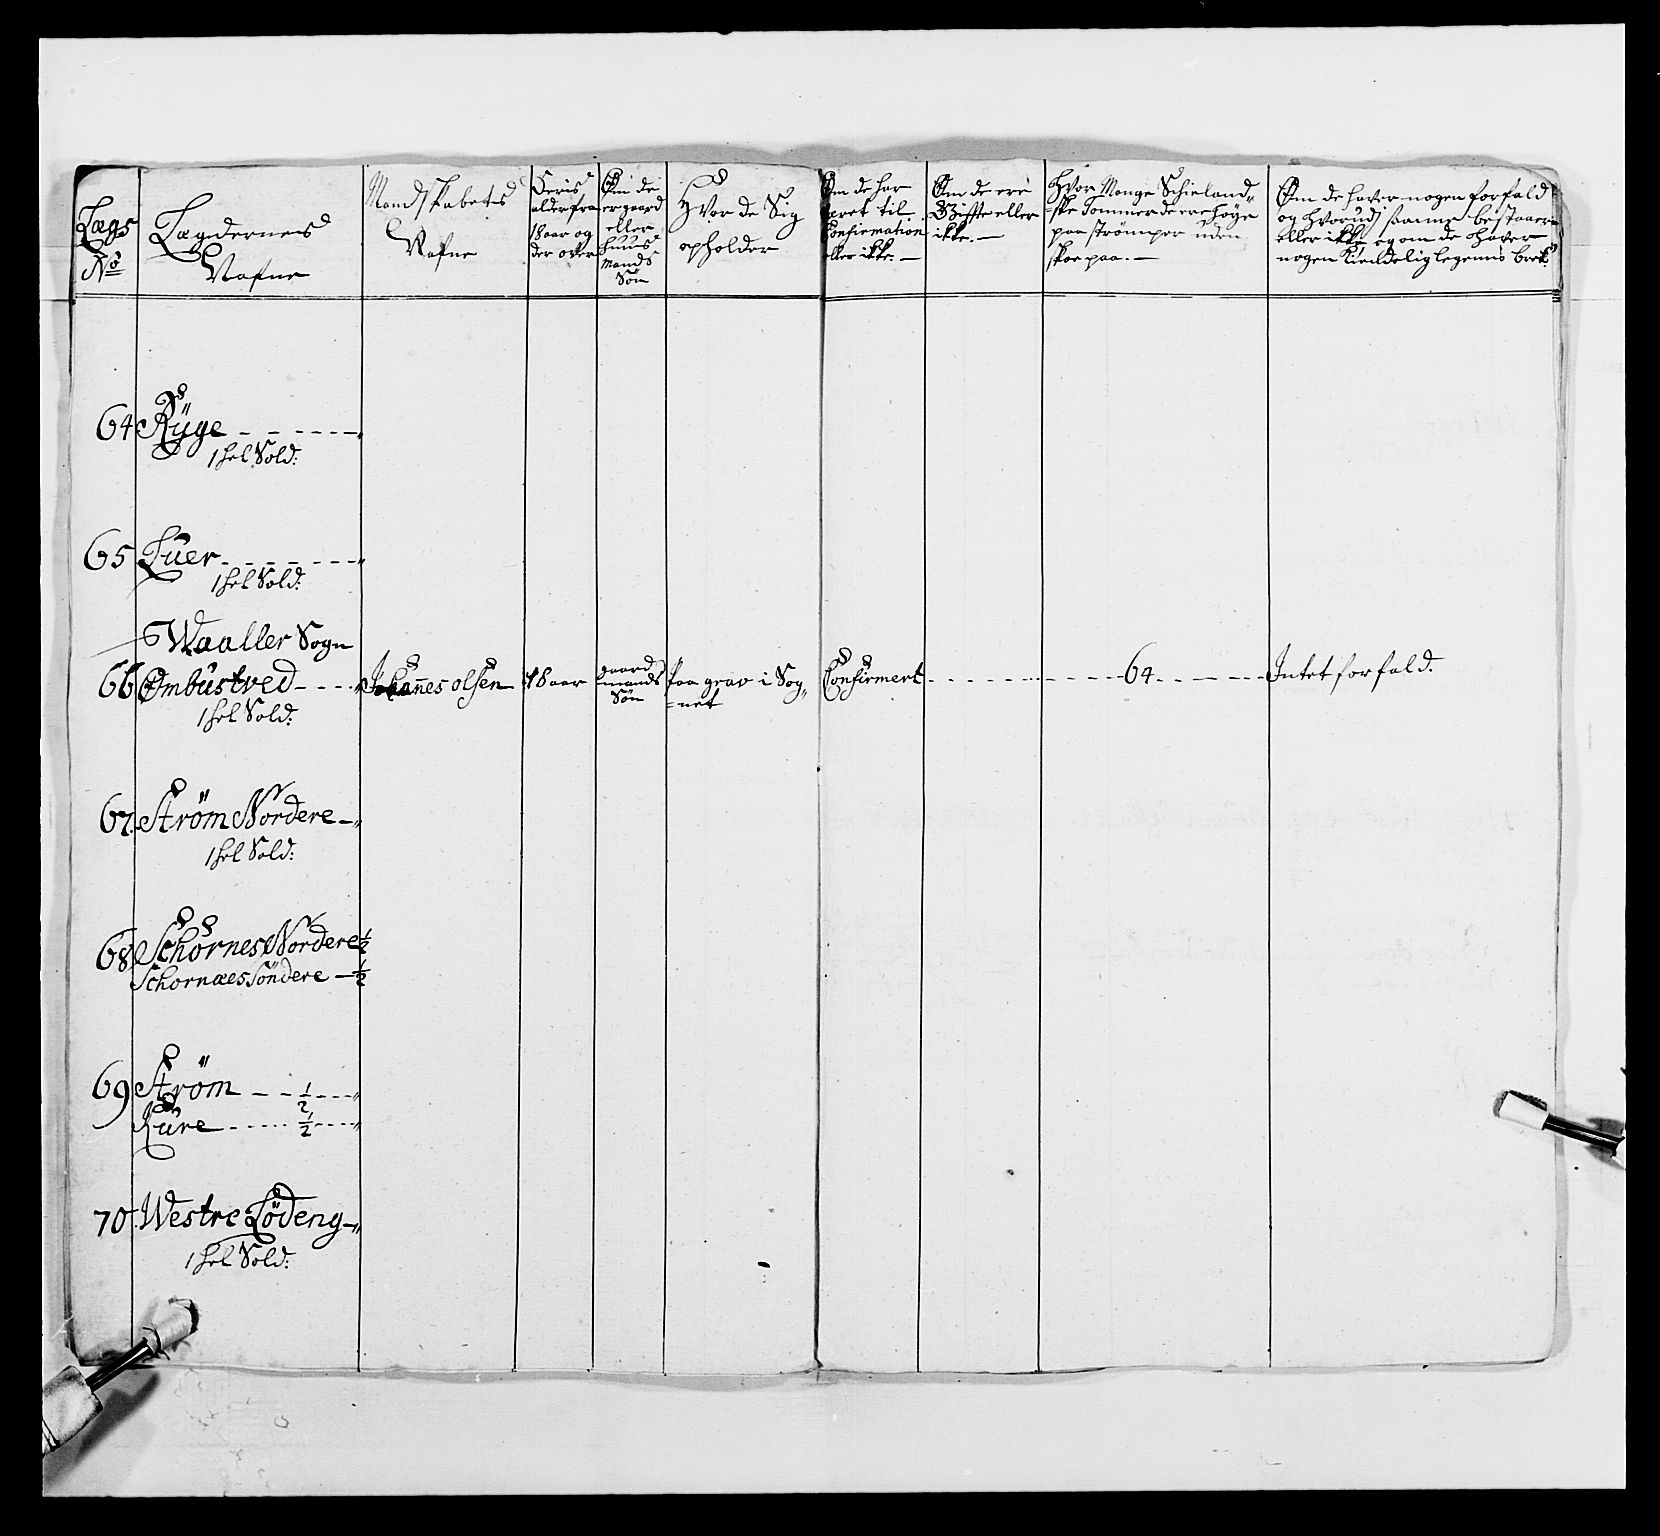 Lægs
No
Lægdernes
Nafne
Mandskabets
Nafne
Deris
alder fra
18 aar og
der over
Om de
er gaard
eller
huus
Mands
Søn
Hvor de Sig
opholder
Om de har
været til
Confirmation
eller ikke. —
Om de ere
Gifte eller
ikke. —
Hvor Mange Schieland-
ske Tommer de ere høye
paa strømper uden
skoe paa. —
Om de haver nogen forfald
og hvorudj samme bestaaer
eller ikke, og om de haver
nogen kiendelig legems bræk.
64 Ryge
1 hel Sold:
65 Luer
1 hel Sold:
Waaller Sogn
66 Ombustved Johannes olsen 18 aar gaard mands Søn Paa grav i Sog- Confirmert 64 Intet forfald.
1 hel Sold: =net
67. Strøm Nordere
1 hel Sold:
68 Schornes Nordere ½
Schornæs Søndere — ½
69 Strøm ½
Kure ½
70. Westre Lødeng
1 hel Sold: